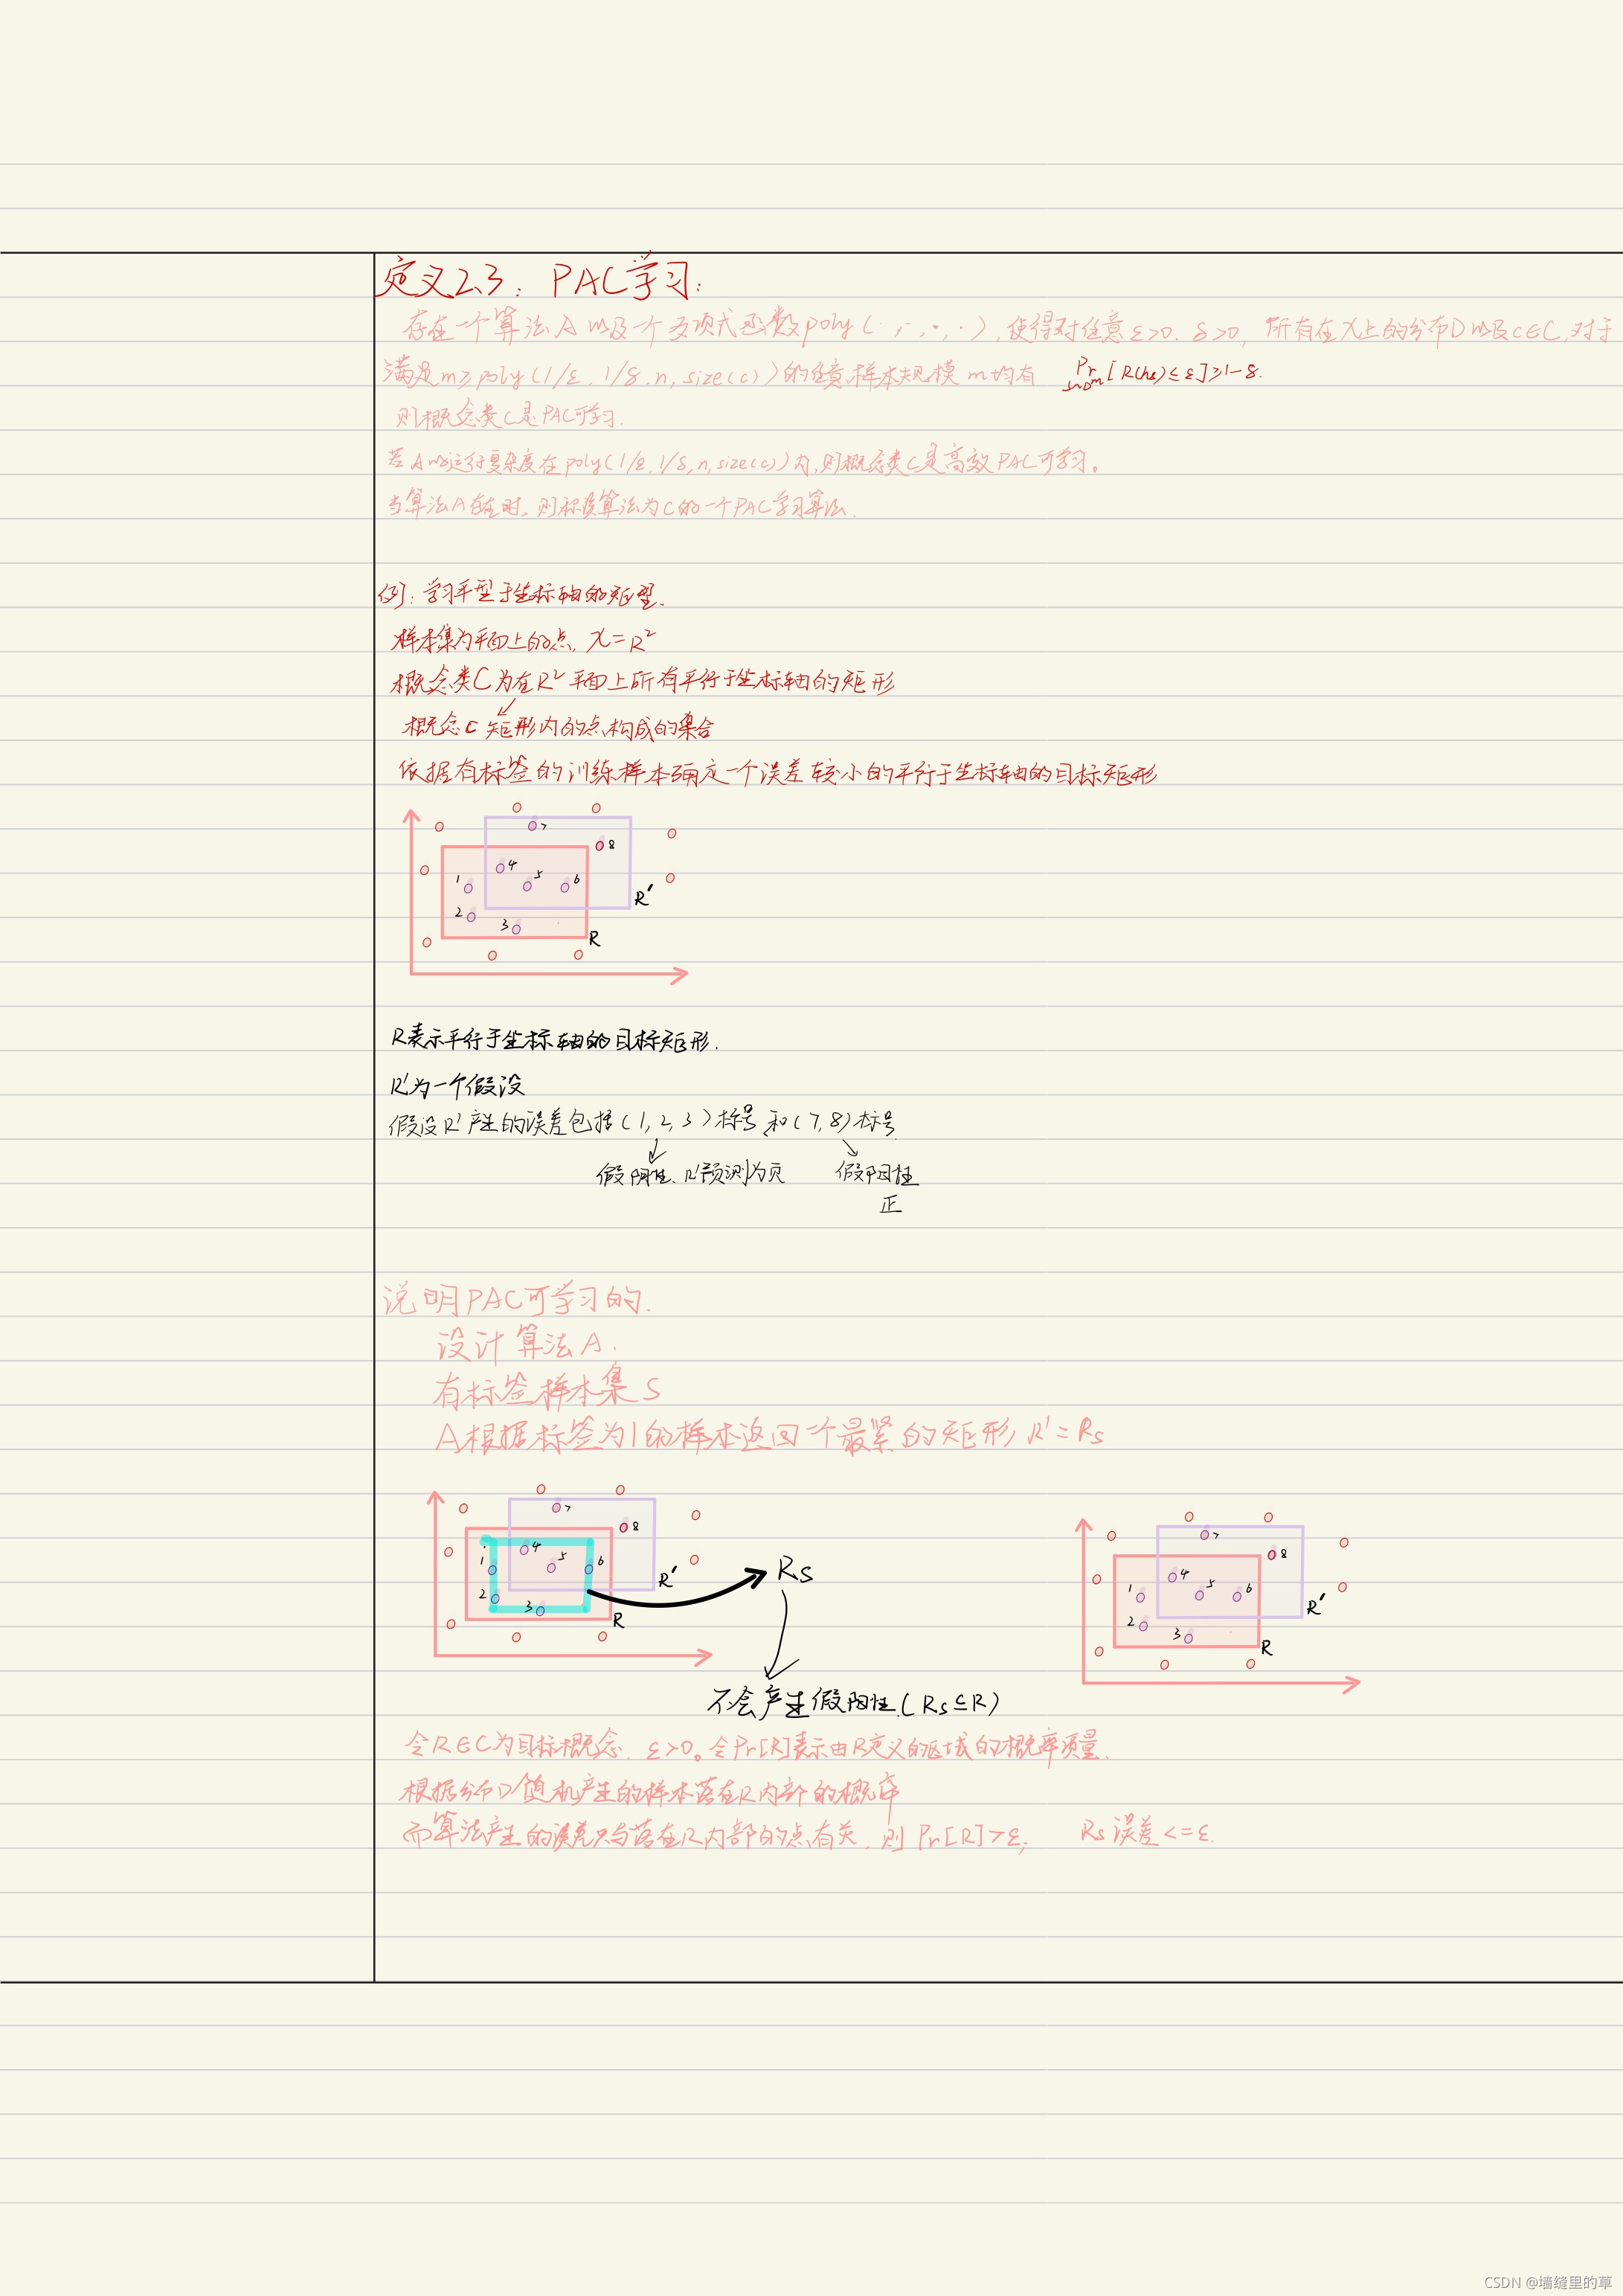 定义2.3：PAC学习：
存在一个算法A以及一个多项式函数poly(·,·,·,·),使得对任意ε>0.δ>0,所有在X上的分布D以及c∈C,对于
满足m≥poly(1/ε,1/δ,n,size(c))的任意样本规模m均有 Pr S~D^m [R(hs)≤ε]≥1-δ.
则概念类C是PAC可学习.
若A的运行复杂度在poly(1/ε,1/δ,n,size(c))内,则概念类C是高效PAC可学习。
当算法A存在时,则称该算法为C的一个PAC学习算法.
例:学习平型于坐标轴的矩型.
样本集为平面上的点, X=R²
概念类C为在R²平面上所有平行于坐标轴的矩形
概念C 矩形内的点构成的集合
依据有标签的训练样本确定一个误差较小的平行于坐标轴的目标矩形
1 2 3 4 5 6 7 8 R R'
R表示平行于坐标轴的目标矩形.
R'为一个假设
假设R'产生的误差包括(1,2,3)标号和(7,8)标号
假阴性.R'预测为负 假阳性
正
说明PAC可学习的.
设计算法A.
有标签样本集S
A根据标签为1的样本返回一个最紧的矩形R'=Rs
1 2 3 4 5 6 7 8 R R' Rs
1 2 3 4 5 6 7 8 R R'
不会产生假阳性.(Rs⊆R)
令R∈C为目标概念.ε>0。令Pr[R]表示由R定义的区域的概率质量.
根据分布D随机产生的样本落在R内部的概率
而算法产生的误差只与落在R内部的点有关.则Pr[R]>ε; Rs误差<=ε.
CSDN @墙缝里的草